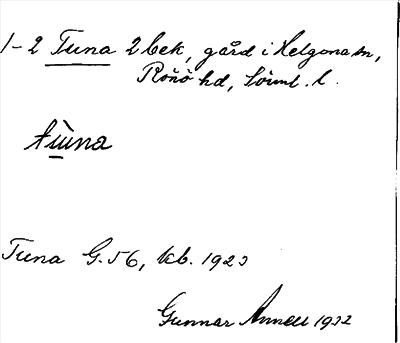 1-2 Tuna 2 bek, gård i Helgona sn,
Rönö hd, Söml. l.
tùna
Tuna G. 56, kb. 1923
Gunnar Annell 1932